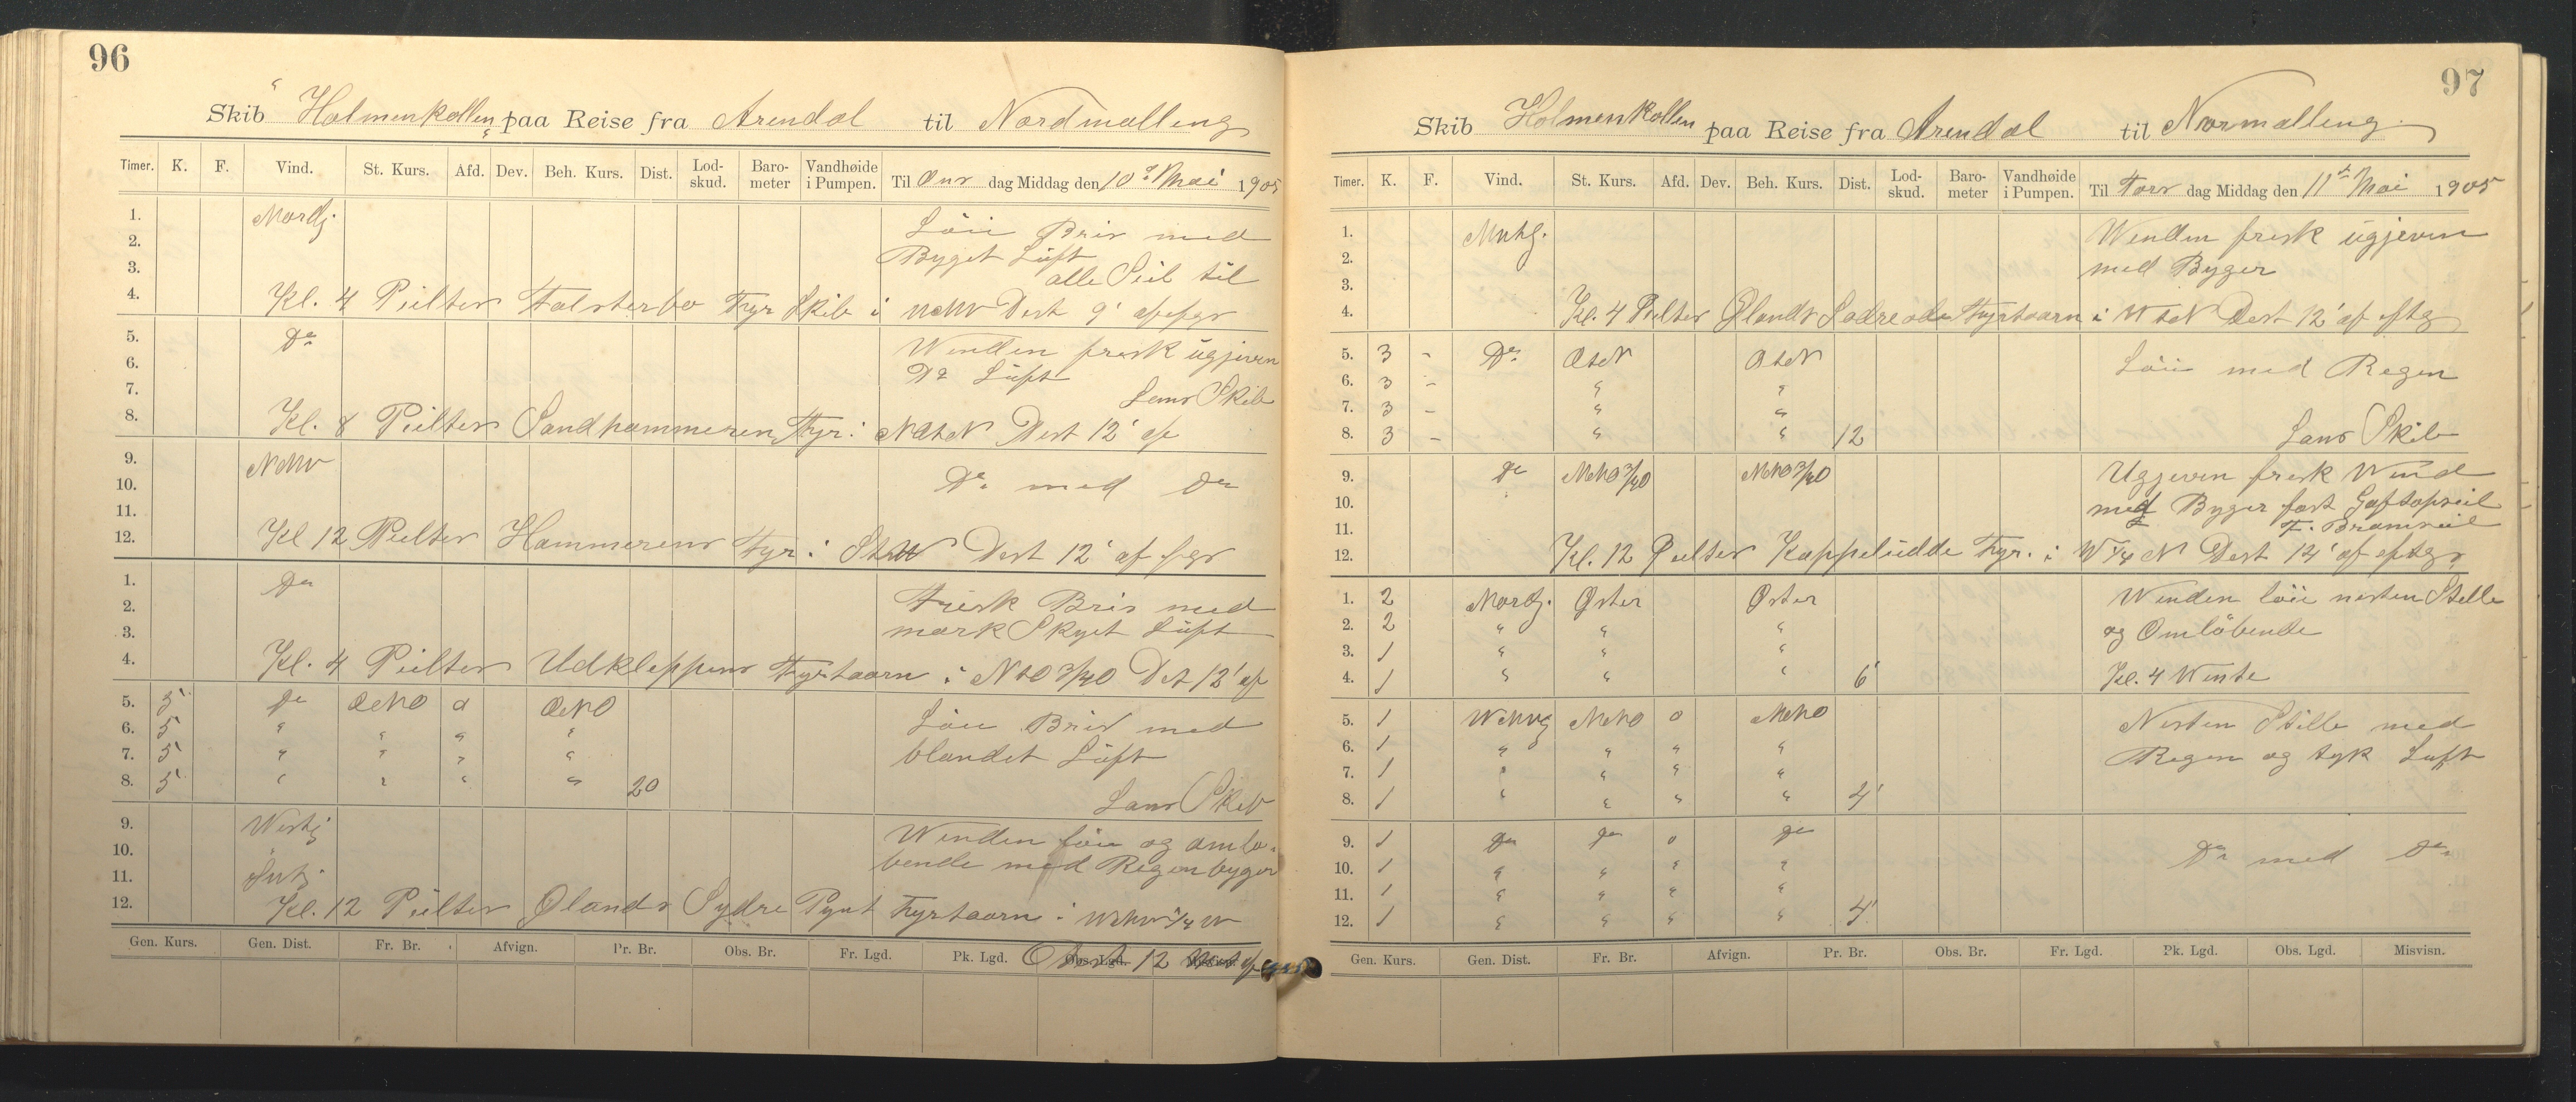 96
Skib "Holmenkollen" paa Reise fra Arendal til Nordmalling
Timer. K. F. Vind. St. Kurs. Afd. Dev. Beh. Kurs. Dist. Lod-skud. Baro-meter Vandhøide i Pumpen. Til Ons dag Middag den 10de Mai 1905
1. Nordlj. Løi Bris med
2. Byget Lüft
3. alle Seil til
4. Kl. 4 Peilter Falsterbo Fyr Skib i Dist 9'
5. Do Winden frisk ügjeven
6. Do Lüft
7. Lens Skib
8. Kl. 8 Peilter Sandhammeren Fyr i Dist 12' af
9. NNW
10. Do med Do
11.
12. Kl 12 Peilter Hammerens Fyr i Dist 12' af
1. Do Frisk Bris med
2. mørk Skyet Lüft
3.
4. Kl. 4 Peilter Udkleppens Fyrtaarn i NtO 3/4 O Dst 12' af
5. 5 Do ONO o ONO Løi Bris med
6. 5 " " " " blandet Lüft
7. 5 " " " "
8. 5 " " " " 20 Lens Skib
9. Westlj Winden løi og omlø-
10. bende med Regenbyger
11. Sütlj
12. Kl. 12 Peilter Ølands Sydre Pynt Fyrtaarn i W
Gen. Kurs. Gen. Dist. Fr. Br. Afvign. Pr. Br. Obs. Br. Fr. Lgd. Pk. Lgd. Obs. Lgd. Dist 12
97
Skib Holmenkollen paa Reise fra Arendal til Normalling
Timer. K. F. Vind. St. Kurs. Afd. Dev. Beh. Kurs. Dist. Lod-skud. Baro-meter Vandhøide i Pumpen. Til Tors dag Middag den 11te Mai 1905
1. Winden frisk ügjeven
2. med Byger
3.
4. Kl. 4 Peilter Ølands Sødre Fyrtaarn i Dist 12' af
5. 3 - Do OtN OtN Løi med Regen
6. 3 - " "
7. 3 - " "
8. 3 - " " 12 Lens Skib
9. Do NNO 3/4 O NNO 3/4 O Ugjeven frisk Wind
10. med Byger fast Gaftopseil
11. F. Bramseil
12. Kl. 12 Peilter Kappelüdde Fyr. i W 1/4 N Dist 12' af
1. 2 Nordlj. Øster Øster Winden løi nesten Stille
2. 2 " " " og Omløbende
3. 1 " " "
4. 1 " " " 6' Kl. 4 Wente
5. 1 NNO o NNO Nesten Stille med
6. 1 " " " " Regen og tyk Luft
7. 1 " " " "
8. 1 " " " " 4'
9. 1 Do Do o Do
10. 1 " " " " Do med Do
11. 1 " " " "
12. 1 " " " " 4'
Gen. Kurs. Gen. Dist. Fr. Br. Afvign. Pr. Br. Obs. Br. Fr. Lgd. Pk. Lgd. Obs. Lgd. Misvisn.